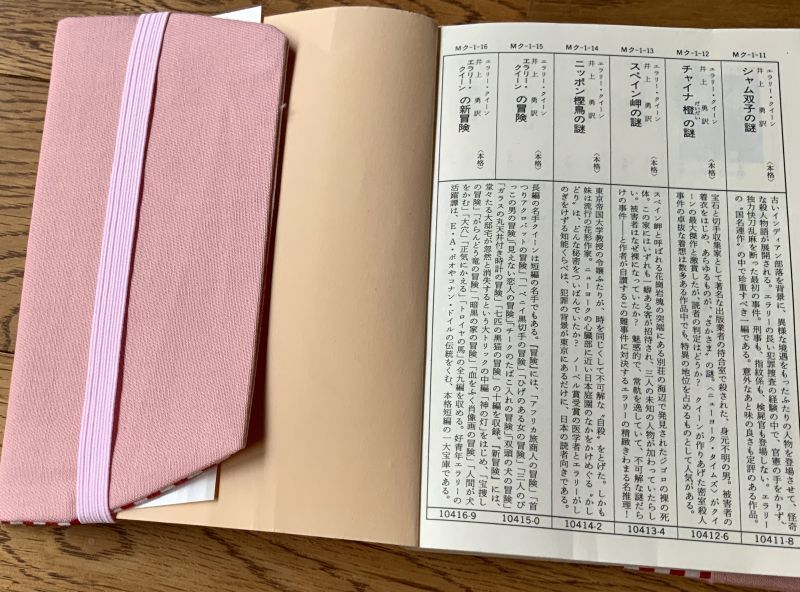 Mク-1-11
エラリー・クイーン
井上勇訳
シャム双子の謎
〈本格〉
古いインディアン部落を背景に、異様な境遇をもったふたりの人物を登場させて、怪奇
な殺人物語が展開される。エラリーの長い犯罪捜査の経験の中で、官憲の手をかりず、
独力快刀乱麻を断った最初の事件。刑事も、指紋係も、検屍官も登場しない。エラリー
の〝国名連作〟の中で珍重すべき一編である。意外なあと味の良さも定評のある作品。
10411-8
Mク-1-12
エラリー・クイーン
井上勇訳
チャイナ橙の謎
だいだい
〈本格〉
宝石と切手収集家として著名な出版業者の待合室で殺された、身元不明の男。被害者の
着衣をはじめ、あらゆるものが、〝さかさま〟の謎。〈ニューヨーク・タイムズ〉がクイ
ーンの最大傑作と激賞したが、読者の判定はどうか?クイーンが作りあげた密室殺人
事件の卓抜な着想は数多ある作品中でも、特異の地位を占めるものとして人気がある。
10412-6
Mク-1-13
エラリー・クイーン
井上勇訳
スペイン岬の謎
〈本格〉
スペイン岬と呼ばれる花崗岩塊の突端にある別荘の海辺で発見されたジゴロの裸の死
体。この家にはいずれも一癖ある客が招待され、三人の未知の人物が加わっていたらし
い。被害者はなぜ裸になっていたか? 魅惑的で、常軌を逸していて、不可解な謎だら
けの事件――と作者が自讃するこの難事件に対決するエラリーの精緻きわまる名推理!
10413-4
Mク-1-14
エラリー・クイーン
井上勇訳
ニッポン樫鳥の謎
〈本格〉
東京帝国大学教授の令嬢ふたりが、時を同じくして不可解な〝自殺〟をとげた。しかも
妹は流行の花形作家。ニューヨークの心臓部に近い日本庭園のなかをかけめぐる〝かし
どり〟は、どんな秘密をついばんでいたか? ノーベル賞受賞の医学者とエラリーがし
のぎをけずる知能くらべは、犯罪の背景が東京にあるだけに、日本の読者向きである。
10414-2
Mク-1-15
エラリー・クイーン
井上勇訳
エラリー・クイーンの冒険
〈本格〉
Mク-1-16
エラリー・クイーン
井上勇訳
エラリー・クイーンの新冒険
〈本格〉
長編の名手クイーンは短編の名手でもある。『冒険』には、「アフリカ旅商人の冒険」「首
つりアクロバットの冒険」「一ペニイ黒切手の冒険」「ひげのある女の冒険」「三人のび
っこの男の冒険」「見えない恋人の冒険」「チークのたばこ入れの冒険」「双頭の犬の冒険」
「ガラスの丸天井付き時計の冒険」「七匹の黒猫の冒険」の十編を収録。『新冒険』には、
堂々たる大邸宅が忽然と消失するという大トリックの中編「神の灯」をはじめ、「宝捜し
の冒険」「がらんどう竜の冒険」「暗黒の家の冒険」「血をふく肖像画の冒険」「人間が犬
をかむ」「大穴」「正気にかえる」「トロイヤの馬」の全九編を収める。好青年エラリーの
活躍譚は、E・A・ポオやコナン・ドイルの伝統をくむ、本格短編の一大宝庫である。
10415-0
10416-9